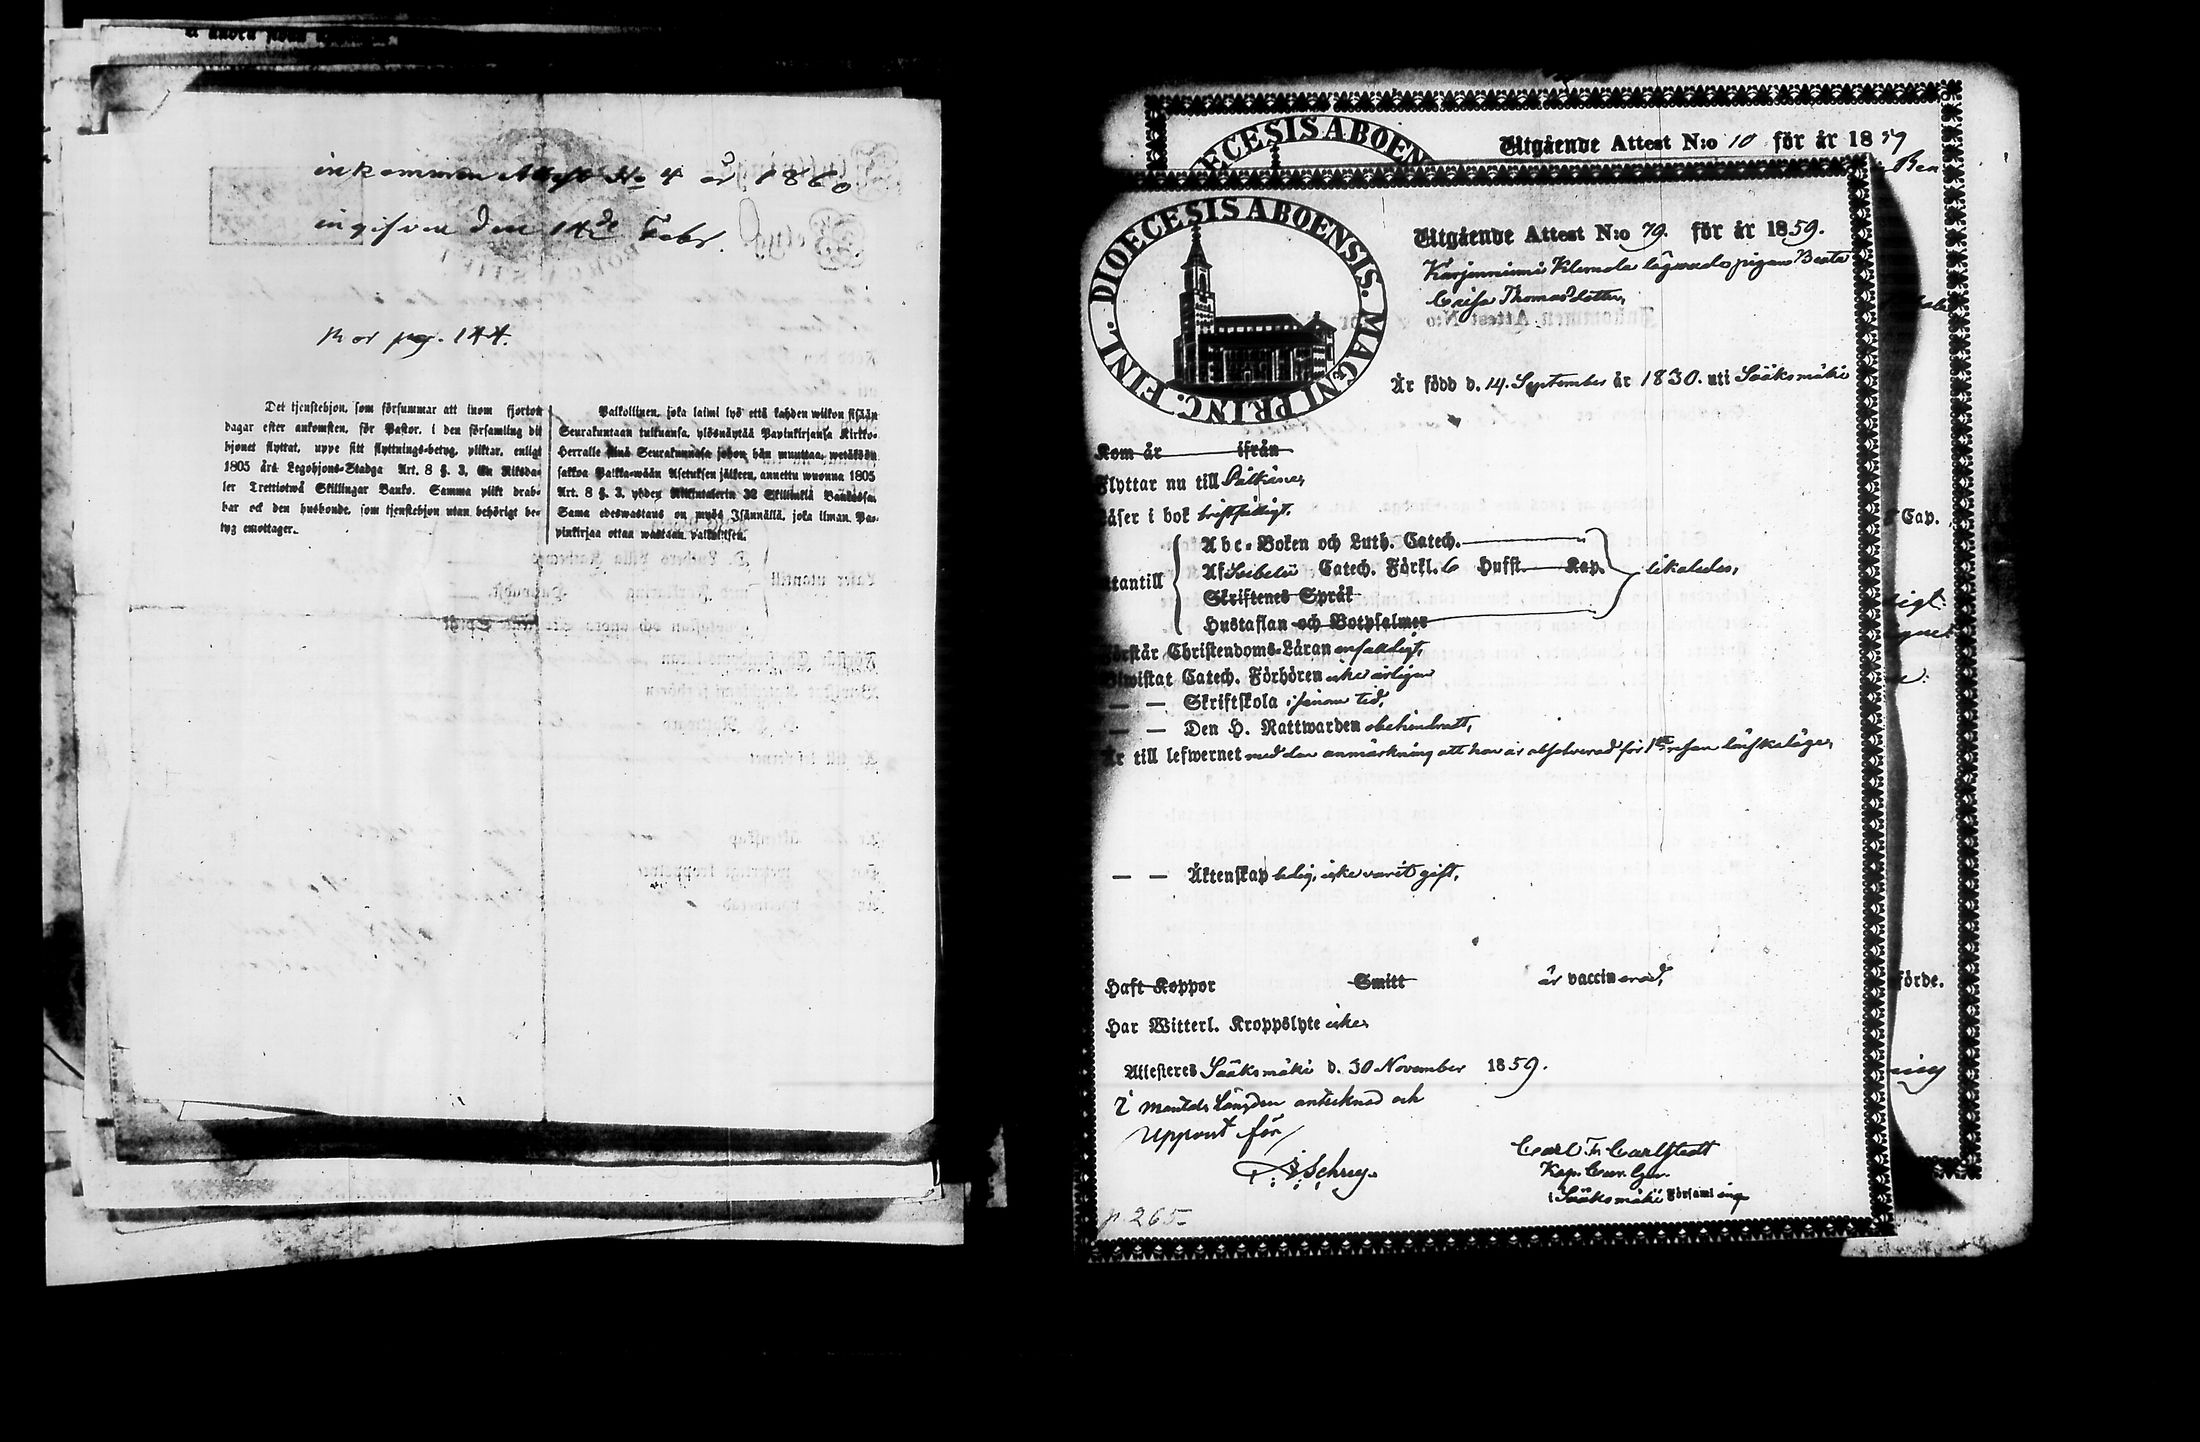 inkommen Attest No 4 år 1860
ingifven den 14de Febr.
mor pag. 144.
Det tjenstehjon, som försummar att inom fjorton
dagar efter ankomsten, för Pastor, i den församling dit
hjonet flyttat, uppe sitt flyttnings-betyg, pliktar, enligt
1805 års Legohjons-Stadga Art. 8 §. 3, En Riksda-
ler Trettiotwå Skillingar Banko. Samma plikt drab-
bar ock den husbonde, som tjenstehjon utan behörigt be-
tyg emottager.
Palkollinen, joka laimi lyö että kahden wiikon sisään
Seurakuntaan tultuansa, ylösnäyttää Papinkirjansa Kirkko-
Herralle siinä Seurakunnasa johon hän muuttaa, wetäköön
sakkoa Palkka-wään Asetuksen jälkeen, annettu wuonna 1805
Art. 8 §. 3, yhden Riksitalerin 32 Skillinkiä Bankossa.
Sama edeswastaus on myös Isännällä, joka ilman Pa-
pinkirjaa ottaa wastaan palkollisen.
Utgående Attest N:o 10 för år 1859
DIOECESIS ABOENSIS. MAGNI PRINC. FINL.
Utgående Attest N:o 79. för år 1859.
Kärjenniemi Klemola lägarads pigan Beata
Caisa Thomasdotter,
Är född d. 14. September år 1830. uti Sääksmäki
Kom år ifrån
Flyttar nu till Pälkäne,
Läser i bok bristfälligt.
utantill
Abc-Boken och Luth. Catech.
Af Svebelii Catech. Förkl. 6 Hufst. Kap. likaledes,
Skriftenes Språk
Hustaflan och Botpsalmer
Förstår Christendoms-Läran enfaldigt,
Biwistat Catech. Förhören icke årligen
— — Skriftskola i sinom tid,
— — Den H. Nattwarden obehindradt,
Är till lefwernet med den anmärkning att hon är absolverad för 1sta resan lönskaläge,
— — Äktenskap ledig, icke varit gift,
Haft Koppor Smitt är vaccinerad,
Har Witterl. Kroppslyte icke,
Attesteres Sääksmäki d. 30 November 1859.
I mantals Längden antecknad och
Carl F. Carlstedt
i Sääksmäki Församling
p. 265
Cap.
förde.